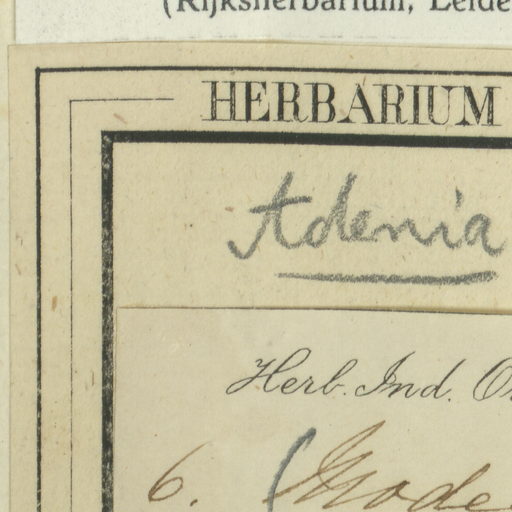 (Rijksherbarium, Leide
HERBARIUM
Adenia
Herb. Ind. Or
6. (Mode